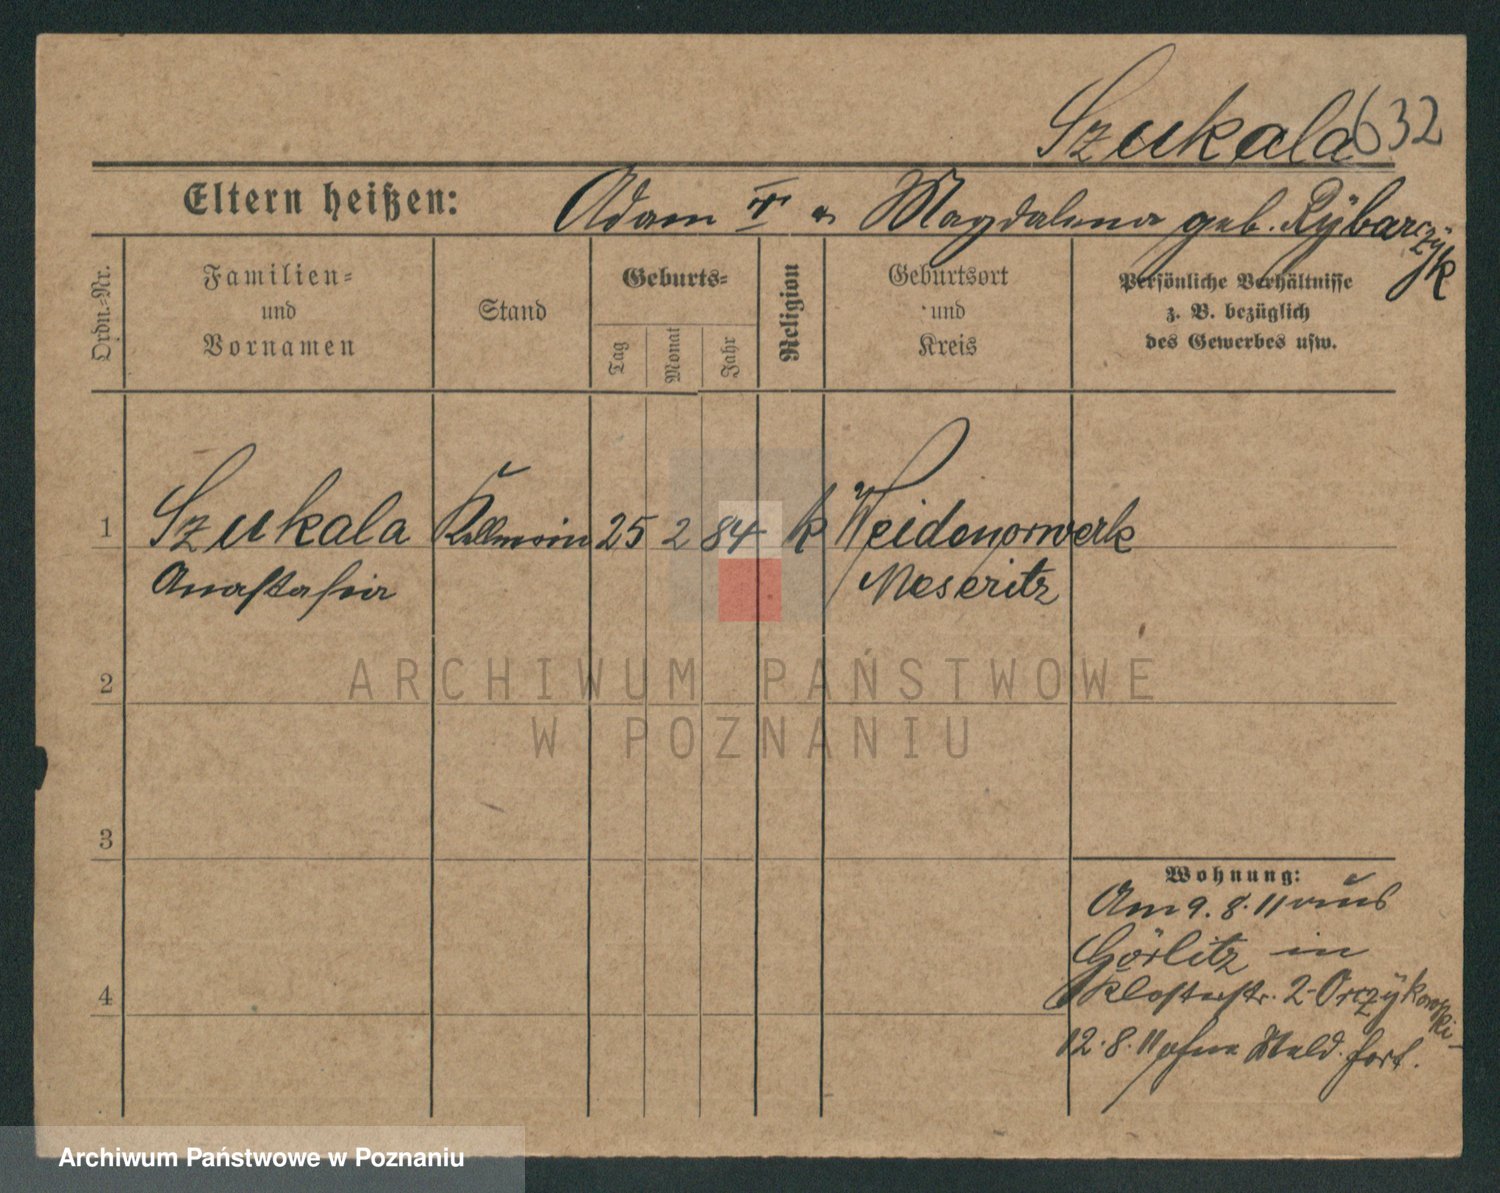 Szukala 632
Eltern heißen: Adam † u Magdalena geb. Rÿbarczÿk
Ordn.-Nr.
Familien-
und
Vornamen
Stand
Geburts-
Tag
Monat
Jahr
Religion
Geburtsort
und
Kreis
Persönliche Verhältnisse
z. B. bezüglich
des Gewerbes usw.
1 Szukala Kellnerin 25 2 84 k Weidenvorwerk
Anastasia Meseritz
2
3
4
Wohnung:
Am 9. 8. 11 aus
Görlitz in
Klosterstr. 2 - Orczÿkowski -
12. 8. 11 ohne Meld. fort.
ARCHIWUM PAŃSTWOWE
W POZNANIU
Archiwum Państwowe w Poznaniu